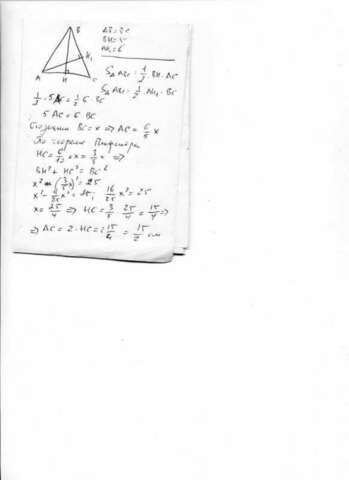 B
H₁
A
H
C
AB = BC
BH = 5
AH₁ = 6
S△ABC = 1/2 · BH · AC
S△ABC = 1/2 · AH₁ · BC
1/2 · 5AC = 1/2 6 · BC
5AC = 6 · BC
BC = x ⇒ AC = 6/5 x
По теореме Пифагора
HC = 6/10 · x = 3/5 x ⇒
BH² + HC² = BC²
x² - (3/5 x)² = 25
x² - 9/25 x² = 25; 16/25 x² = 25
x = 25/4 ⇒ HC = 3/5 · 25/4 = 15/4 ⇒
⇒ AC = 2 · HC = 2 15/4 = 15/2 см